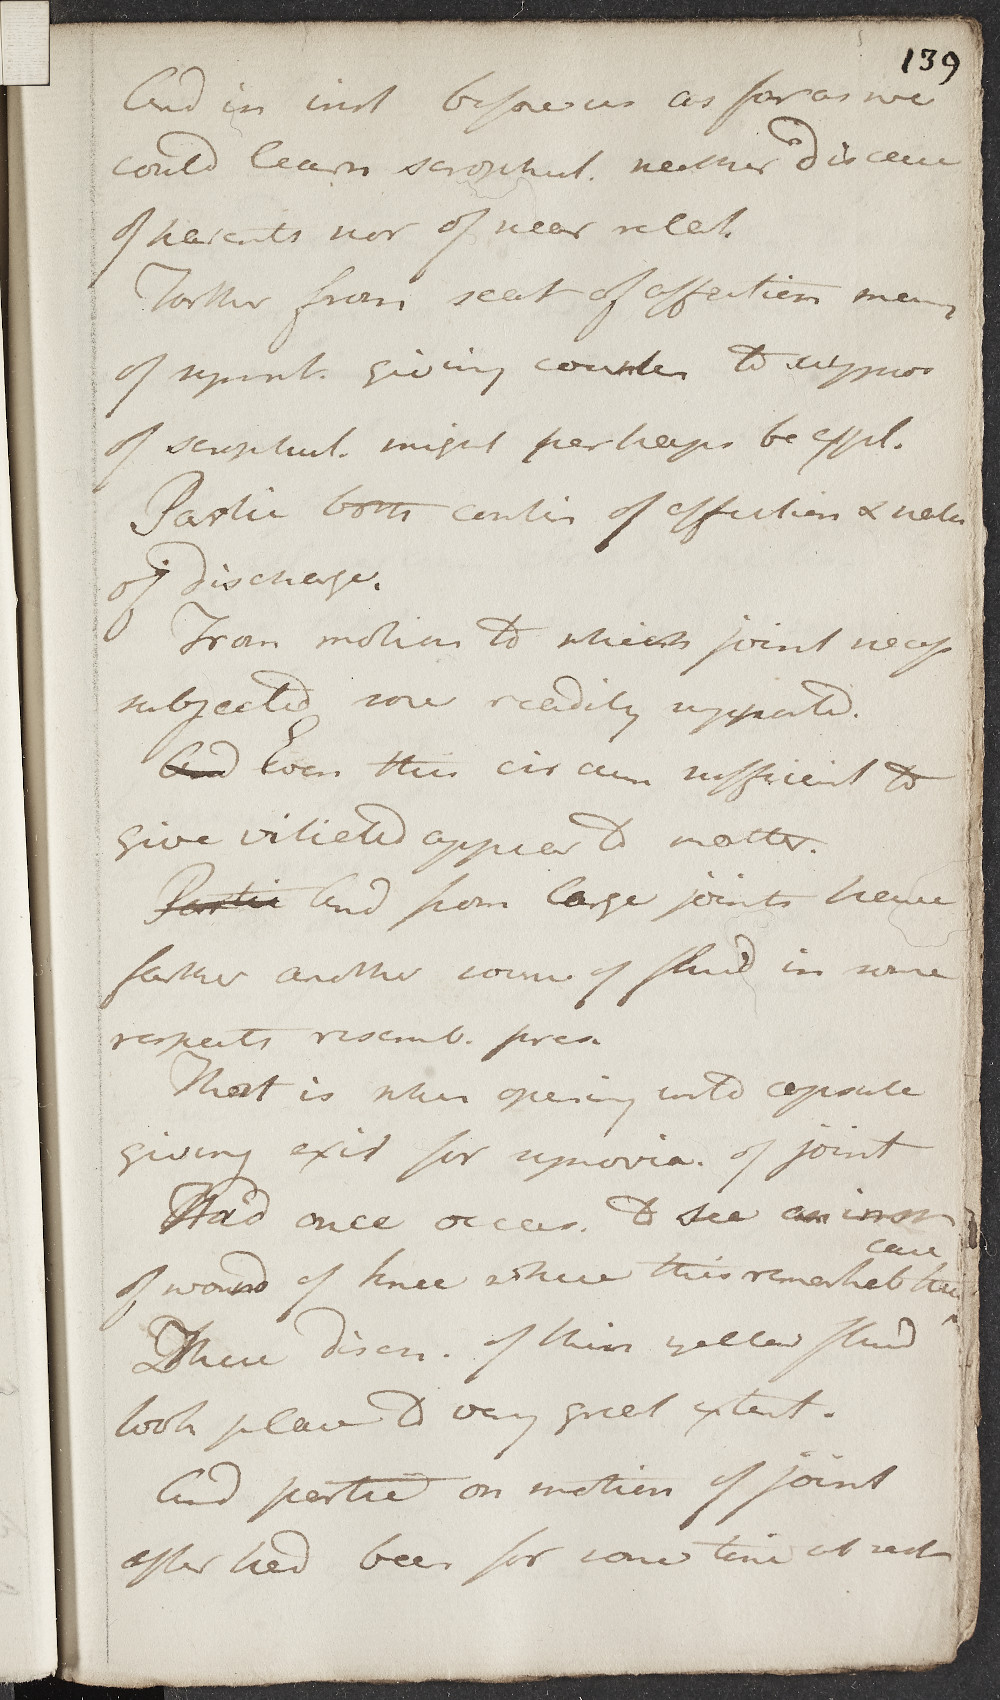 139
And in inst before us as far as we
could learn scrophul. neither disease
of parents nor of near relat.
Farther from seat of affection many
of sympt. giving counten to suppos
of scrophul. might perhaps be expl.
Partic both contin of affection & natur
of discharge.
From motion to which joint necess
subjected sore readily
And Even this circum sufficient to
give vitiated appear to matter.
Partic And from large joints have
farther another source of fluid in some
respects resemb. pres.
That is when opening into capsule
giving exit for synovia. of joint
Had once occas. to see an inst
case
of wound of knee where this remarkab
There disch. of thin yellow fluid
took place to very great extent.
And partic on motion of joint
after had been for some time at rest